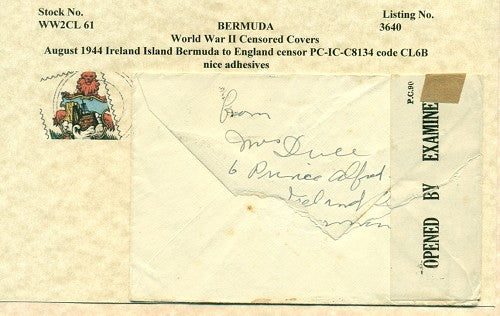 Stock No.
WW2CL 61
BERMUDA
Listing No.
3640
World War II Censored Covers
August 1944 Ireland Island Bermuda to England censor PC-IC-C8134 code CL6B
nice adhesives
From
Mrs Dull
6 Prince Alfred
Ireland
P.C.90
OPENED BY EXAMINE